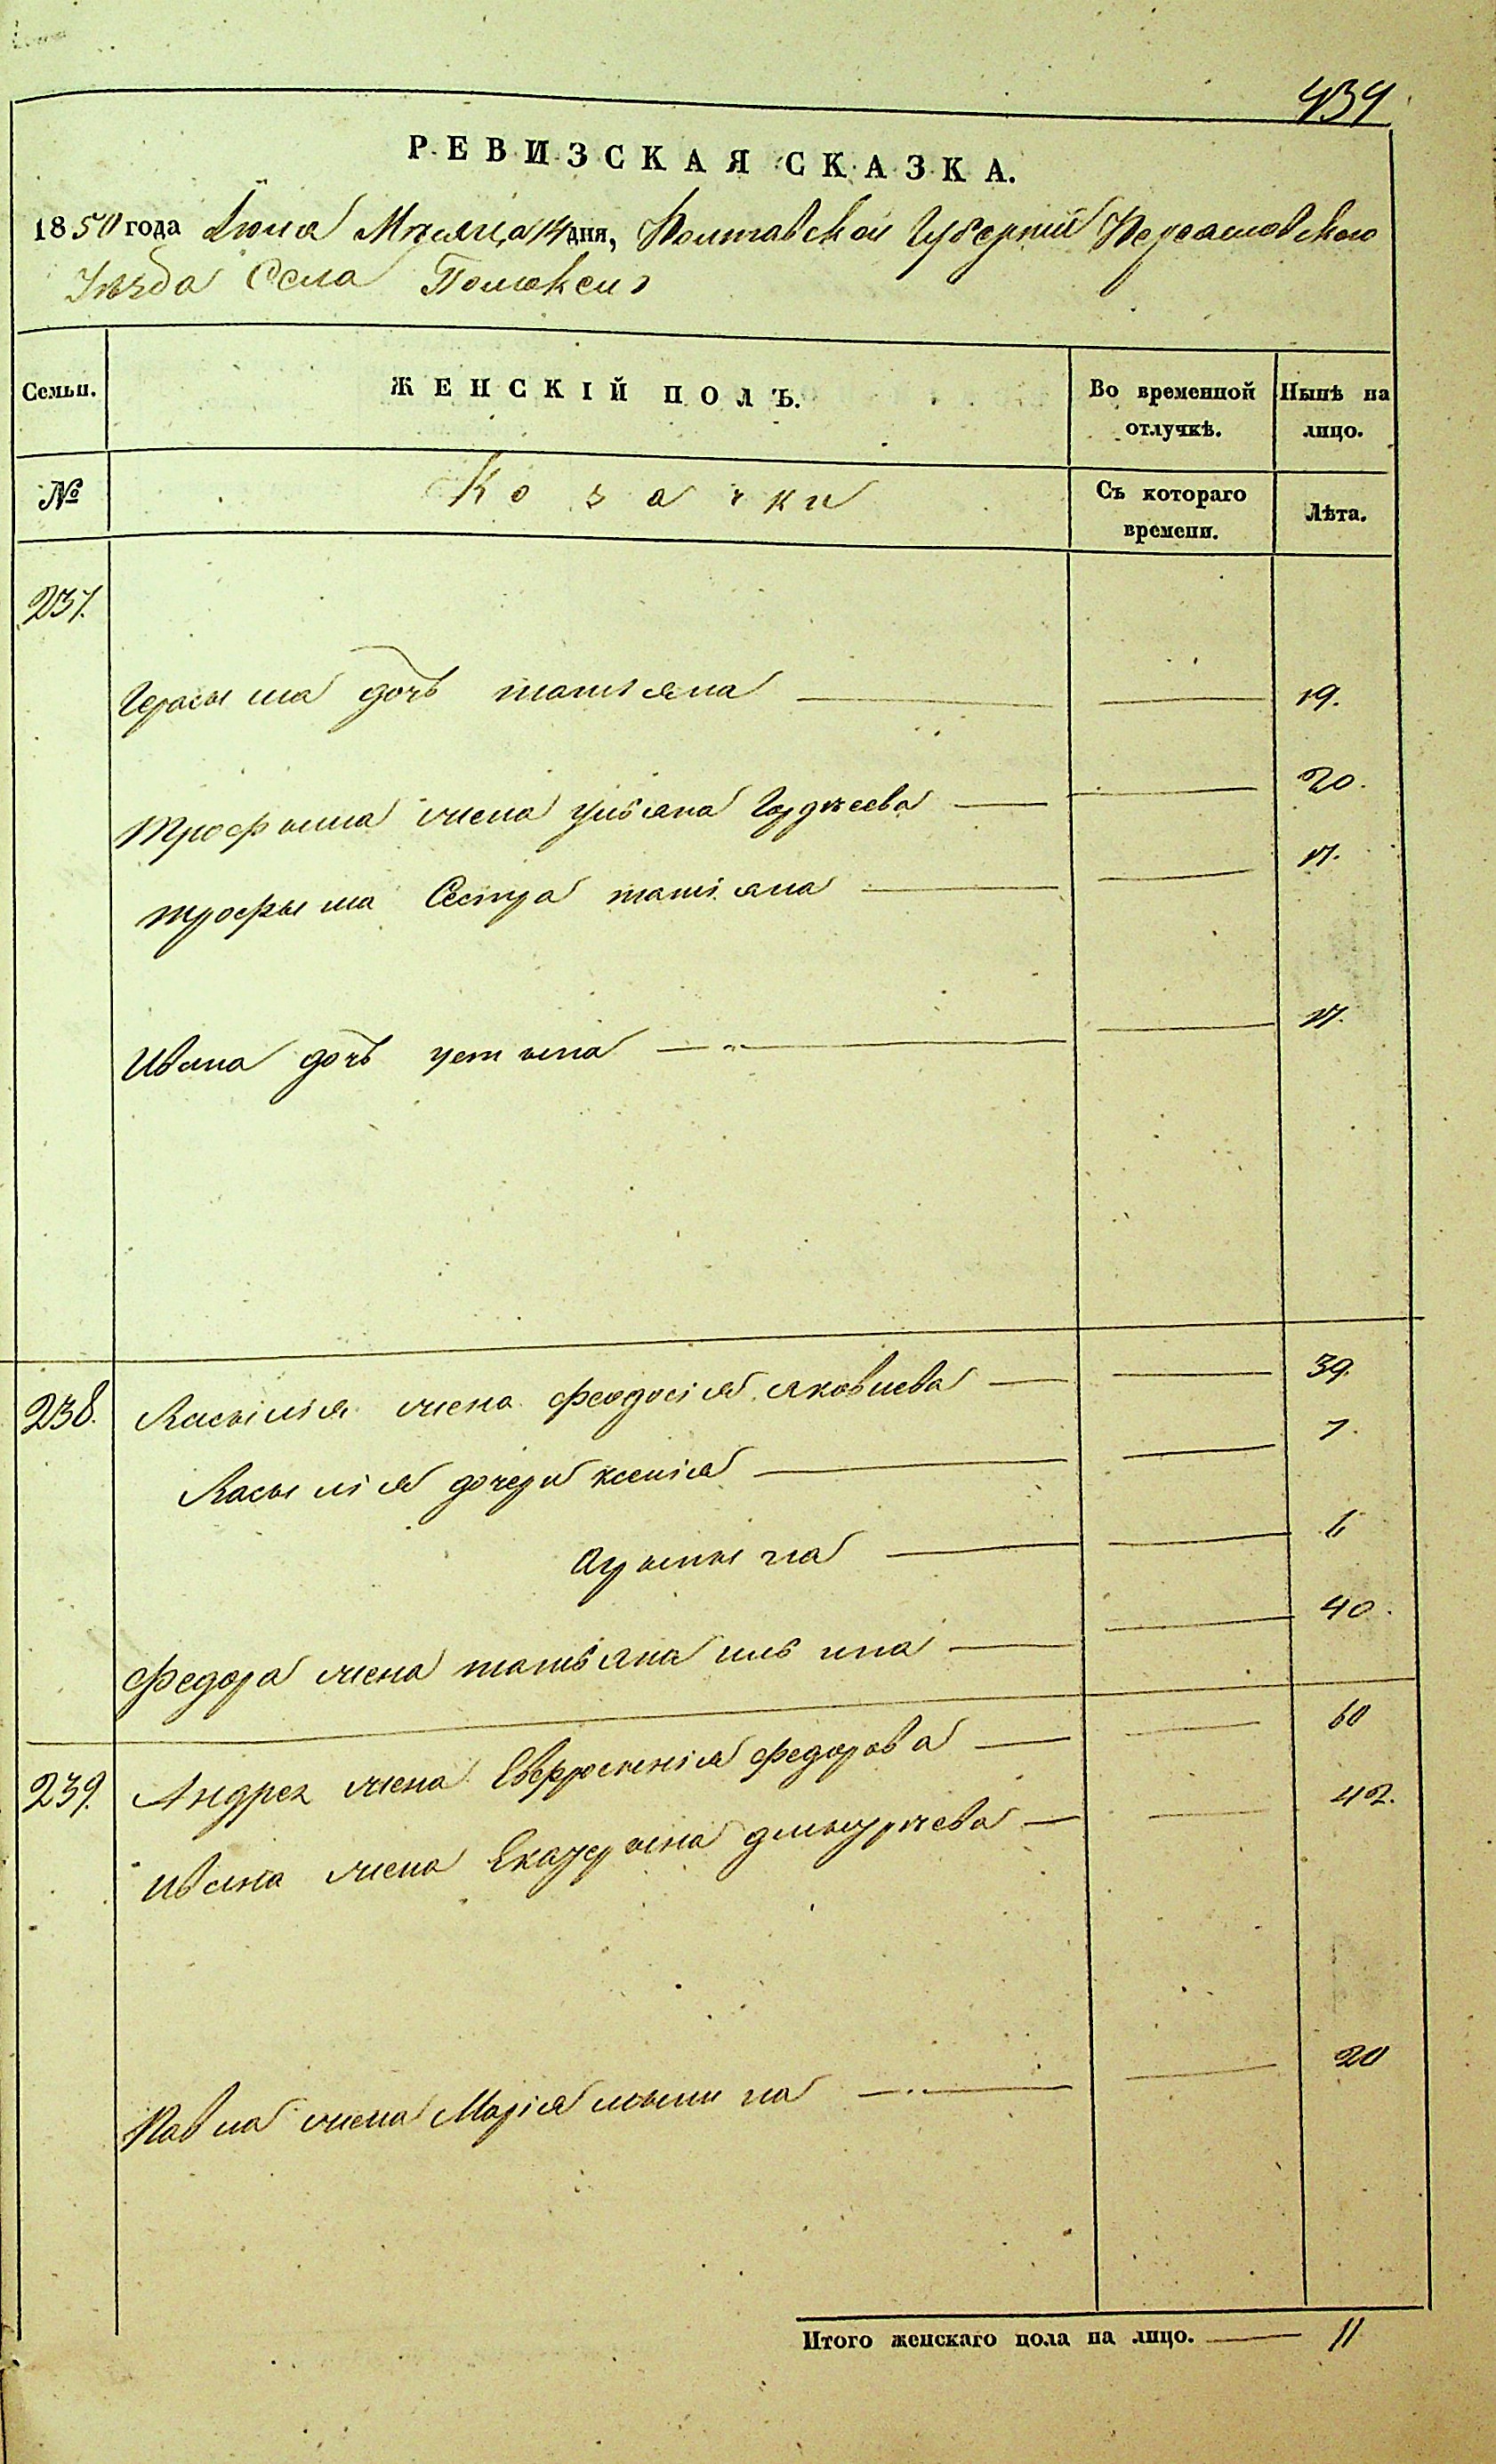 434
РЕВИЗСКАЯ СКАЗКА.
1850 года Июня Мѣсяца 14 дня, Полтавской Губерніи Переяславского
Уѣзда Села Помоклей
Семьи. ЖЕНСКІЙ ПОЛЪ. Во временной отлучкѣ. Нынѣ на лицо.
№ Козачки Съ котораго времени. Лѣта.
237.
Герасыма дочь татіяна 19.
трофыма жена уліяна Гордѣева 20.
трофыма Сестра татіяна 17.
Ивана дочь устына 17.
238. Васылія жена феодосія яковлева 39.
Васылія дочери ксенія 7.
6
федора жена татьяна 40.
239. Андрея жена Евфросенія федорова 60
ивана жена Екатерына дмытріева 42.
Павла жена Марія 20
Итого женскаго пола на лицо. 11